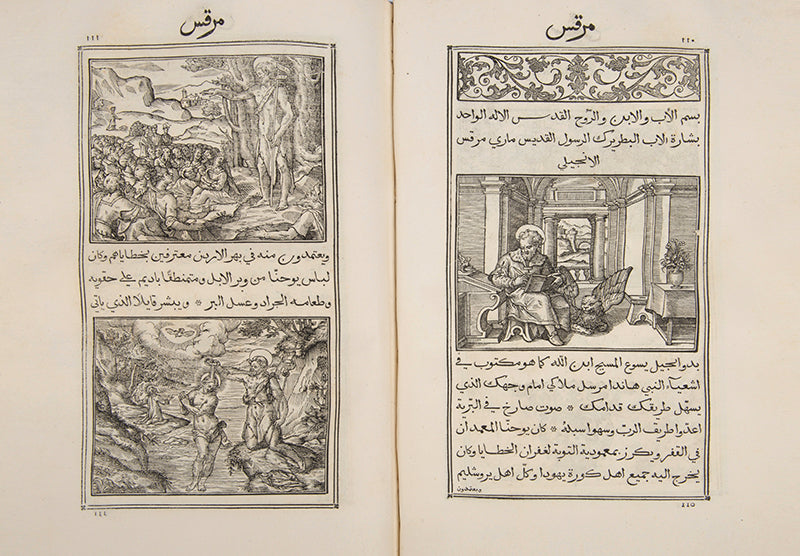 مرقس
بسم الأب والابن والروح القدس الاله الواحد
بشارة الاب البطريرك الرسول القديس ماري مرقس
الانجيلي
بدو انجيل يسوع المسيح ابن الله كما هو مكتوب في
اشعياء النبي هاندا مرسل ملاكي امام وجهك الذي
يسهل طريقك قدامك * صوت صارخ في البرية
اعدوا طريف الرب وسهوا سبله * كان يوحنا المعمدان
في القفر ويكرز بمعمودية التوبة لغفران الخطايا وكان
يخرج اليه جميع اهل كورة يهودا وكل اهل يروشليم
ويعتمدون
مرقس
ويعتمدون منه في نهر الاردن معترفين بخطاياهم وكان
لباس يوحنا من وبر الابل ومتمنطقا باديم على حقويه
وطعامه الجراد وعسل البر * ويبشر قايلا الذي ياتي